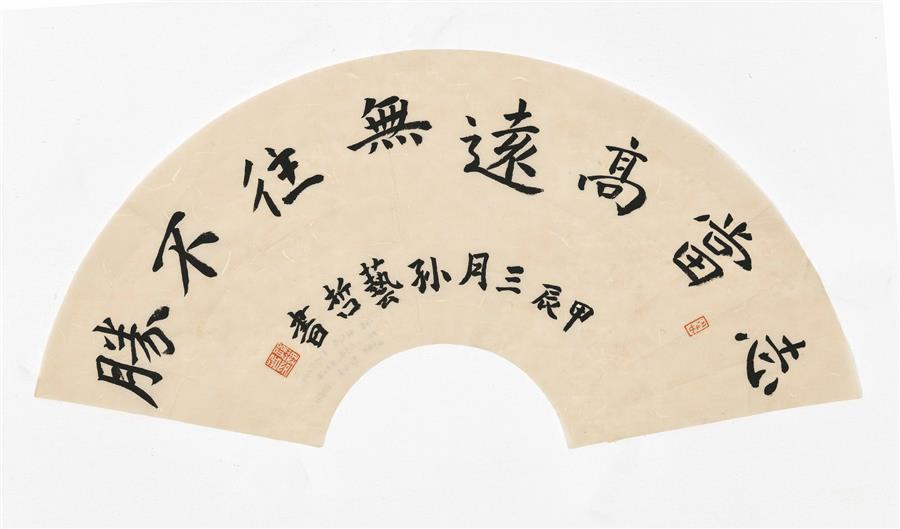 志當高遠無往不勝
甲辰三月孫藝哲書